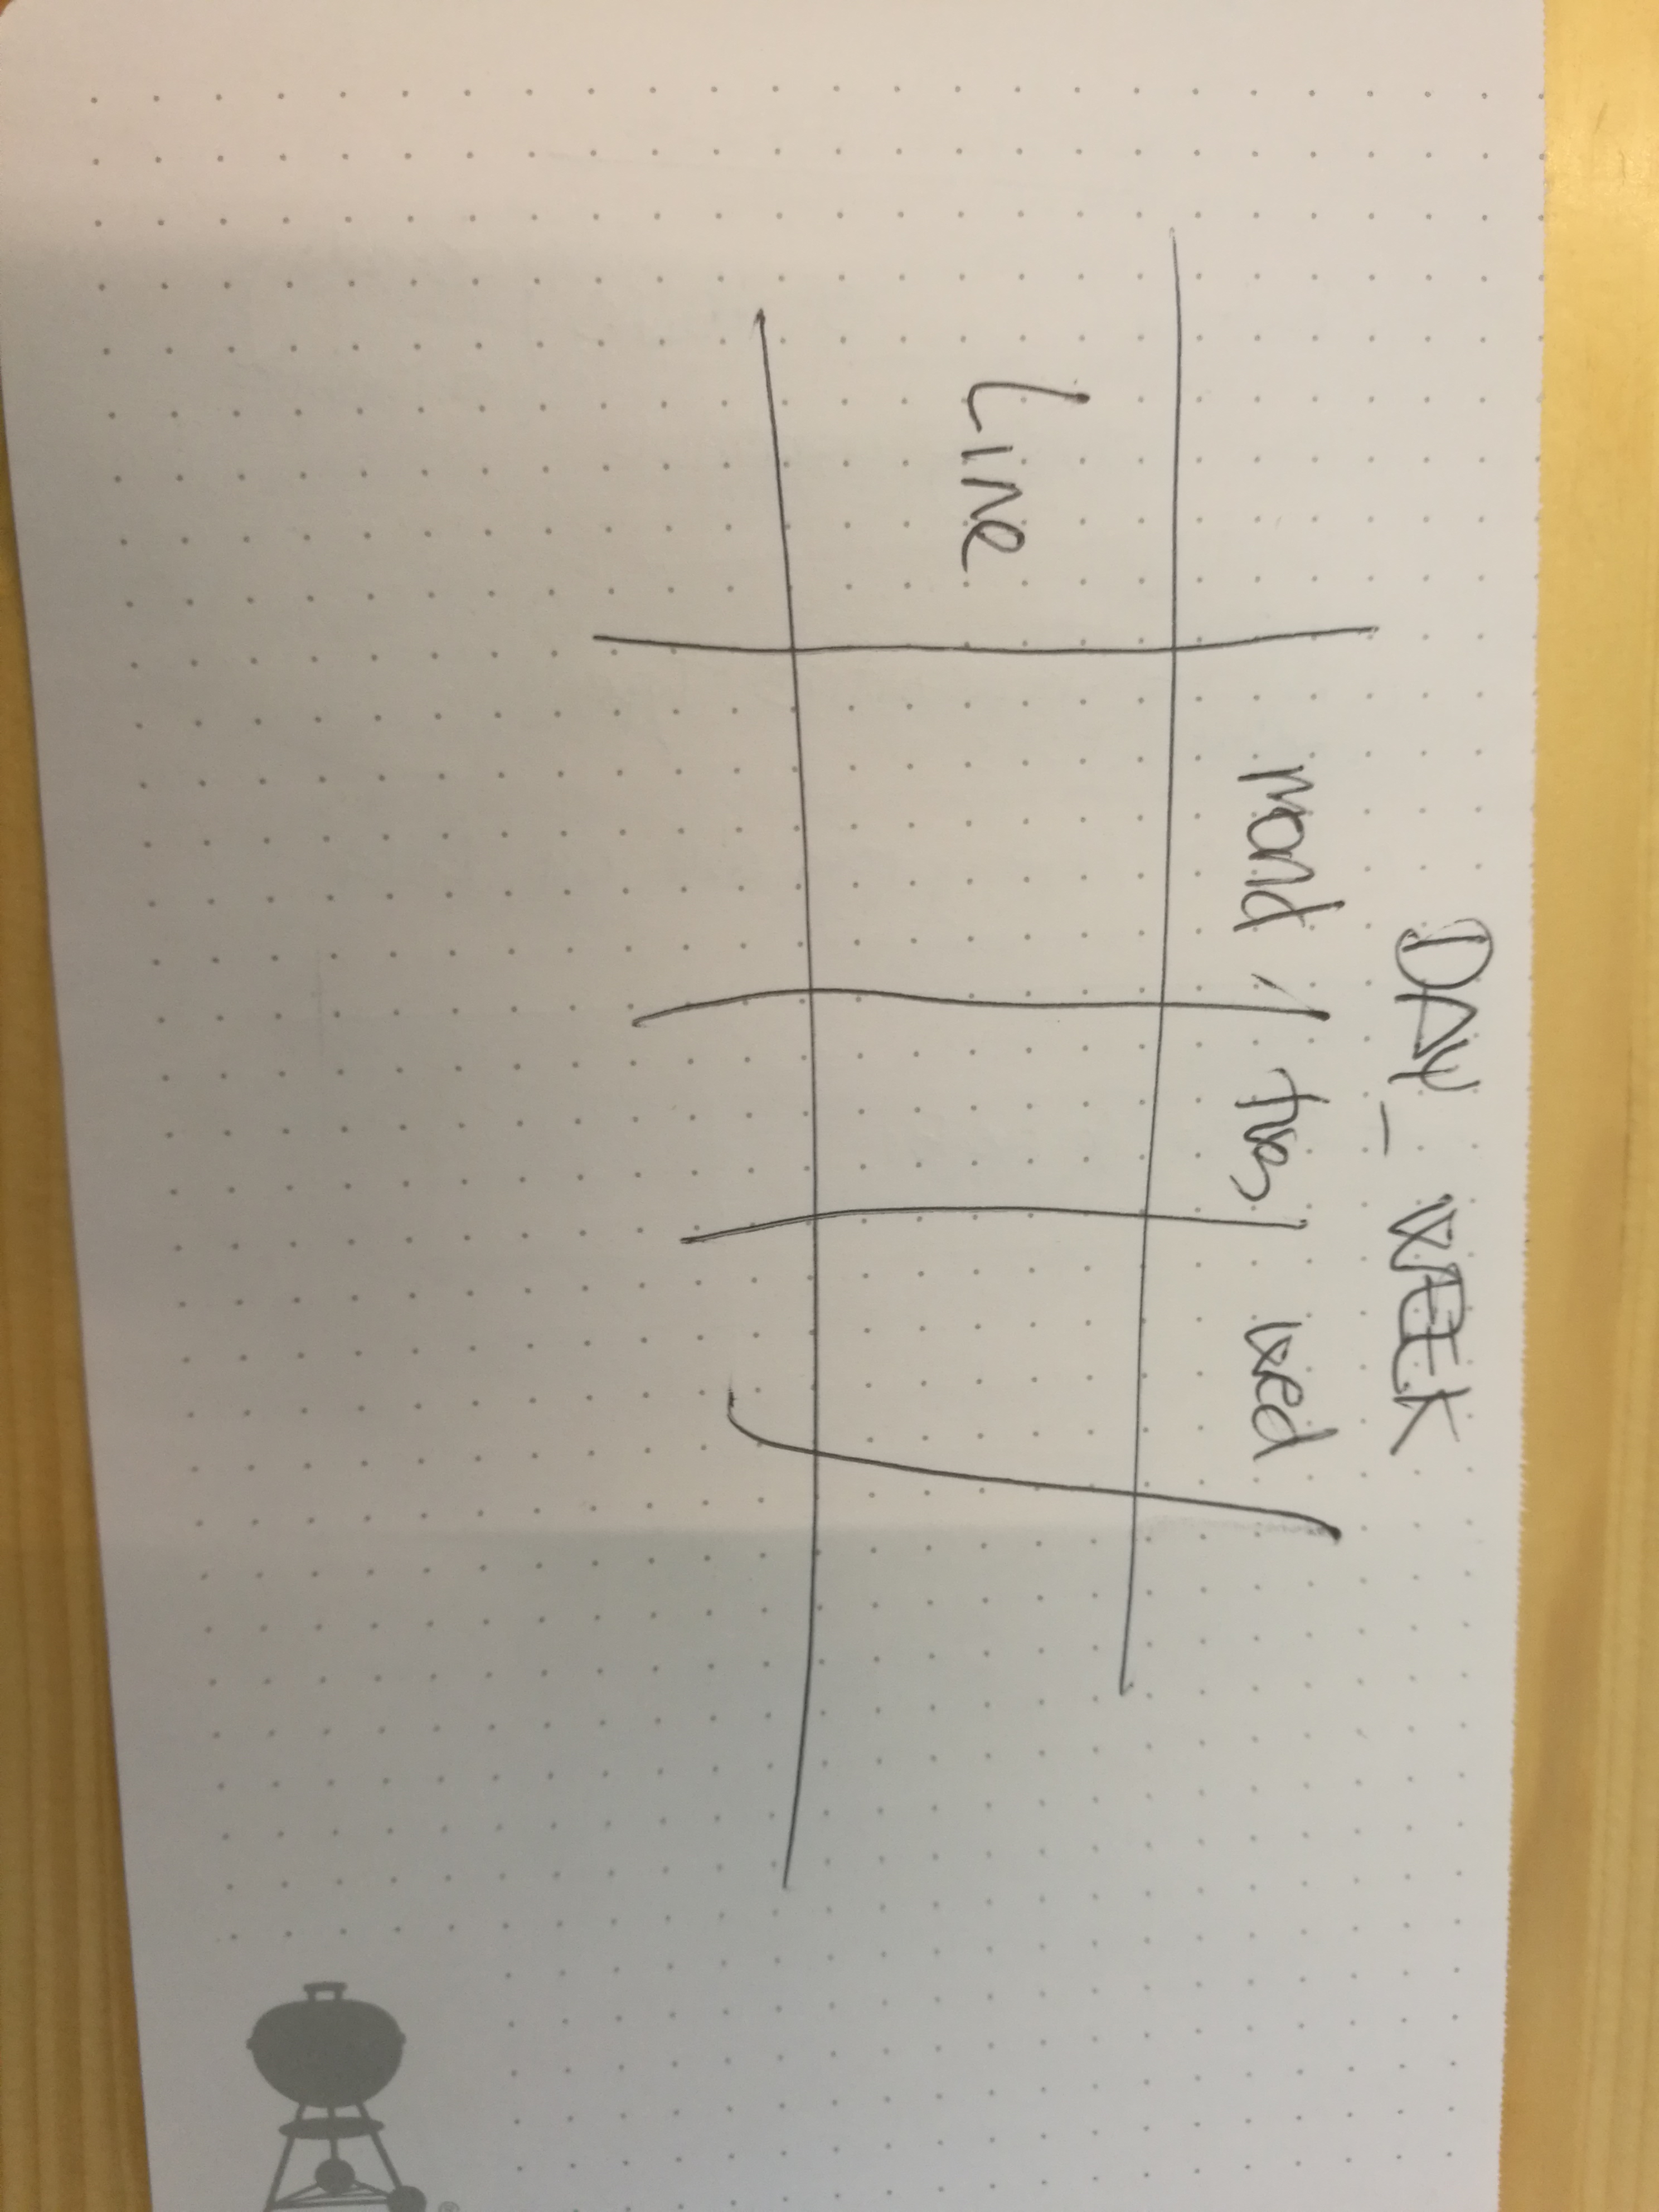 DAY_ WEEK
mond tus wed
Line
®